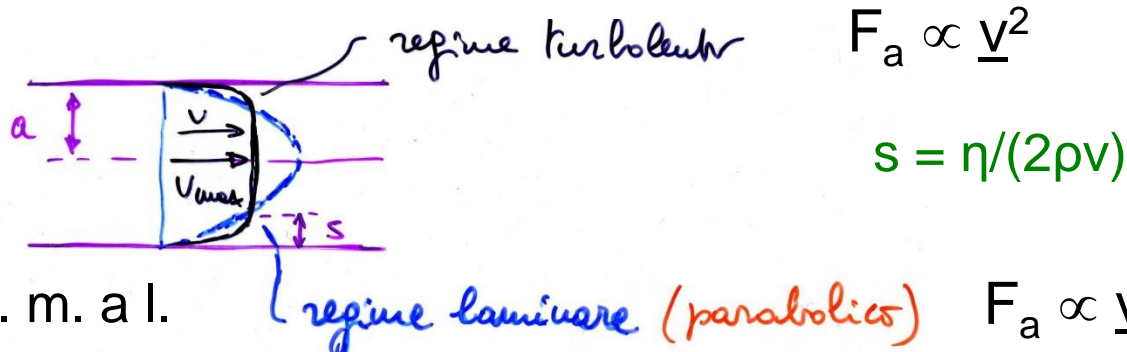 regime turbolento Fa ∝ v²
a
v
vmax
s
s = η/(2ρv)
. m. a l.
regime laminare (parabolico) Fa ∝ v